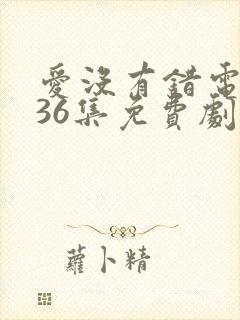 愛沒有錯電
36集免費劇
蘿卜精